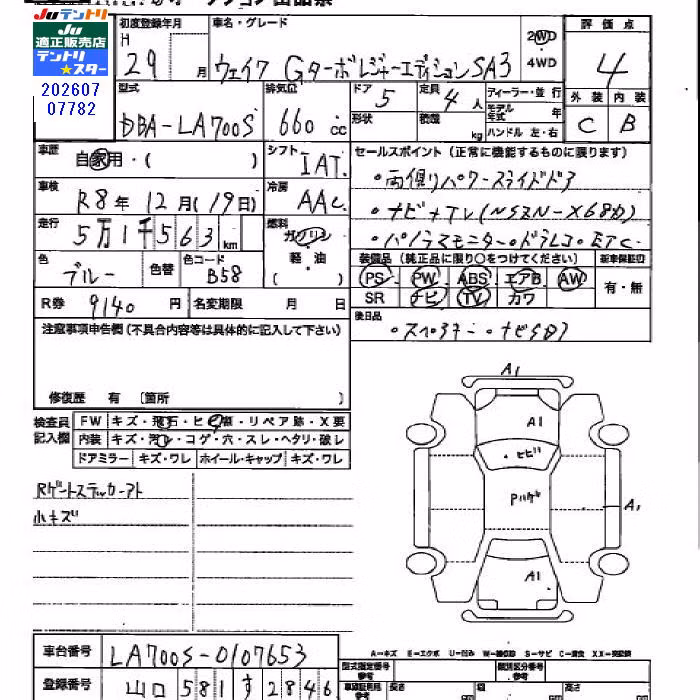 Juテントリ
Ju
適正販売店
テントリ
★スター
202607
07782
初度登録年月
H
29 月
車名・グレード
ウェイク GターボレジャーエディションSA3
2WD
・
4WD
評価点
4
型式
DBA-LA700S
排気量
660 cc
ドア
5
形状
定員
4 人
積載
kg
ディーラー・並行
モデル年式 年
ハンドル 左・右
外装 内装
C B
車歴
自家用・( )
シフト
IAT
セールスポイント (正常に機能するものに限ります)
・両側パワースライドドア
・ナビ+TV(NSZN-X68D)
・パノラマモニター・ドラレコ・ETC
車検
R8年 12月(19日)
冷房
AAC
走行
5万1千563 km
燃料
ガソリン
軽・油
( )
色
ブルー
色替
色コード
B58
装備品 (純正品に限り○をつけてください)
PS PW ABS エアB AW
SR ナビ TV カワ
新車保証書
有・無
R券 9140 円
名変期限 月 日
後日品
・スペアキー・ナビSD
注意事項申告欄 (不具合内容等は具体的に記入して下さい)
修復歴 有 〔箇所 〕
検査員
記入欄
FW キズ・飛石・ヒビ・リペア跡・X要
内装 キズ・汚レ・コゲ・穴・スレ・ヘタリ・破レ
ドアミラー キズ・ワレ ホイール・キャップ キズ・ワレ
Rゲートステッカーアト
小キズ
A1
A1
・ヒビ
Pハゲ
A1
A1
A-キズ E-エクボ U-凹み W-補修跡 S-サビ C-腐食 XX-交換済
車台番号
LA700S-0107653
登録番号
山口 581 す 2846
型式指定番号
類別区分番号
長さ 幅 高さ